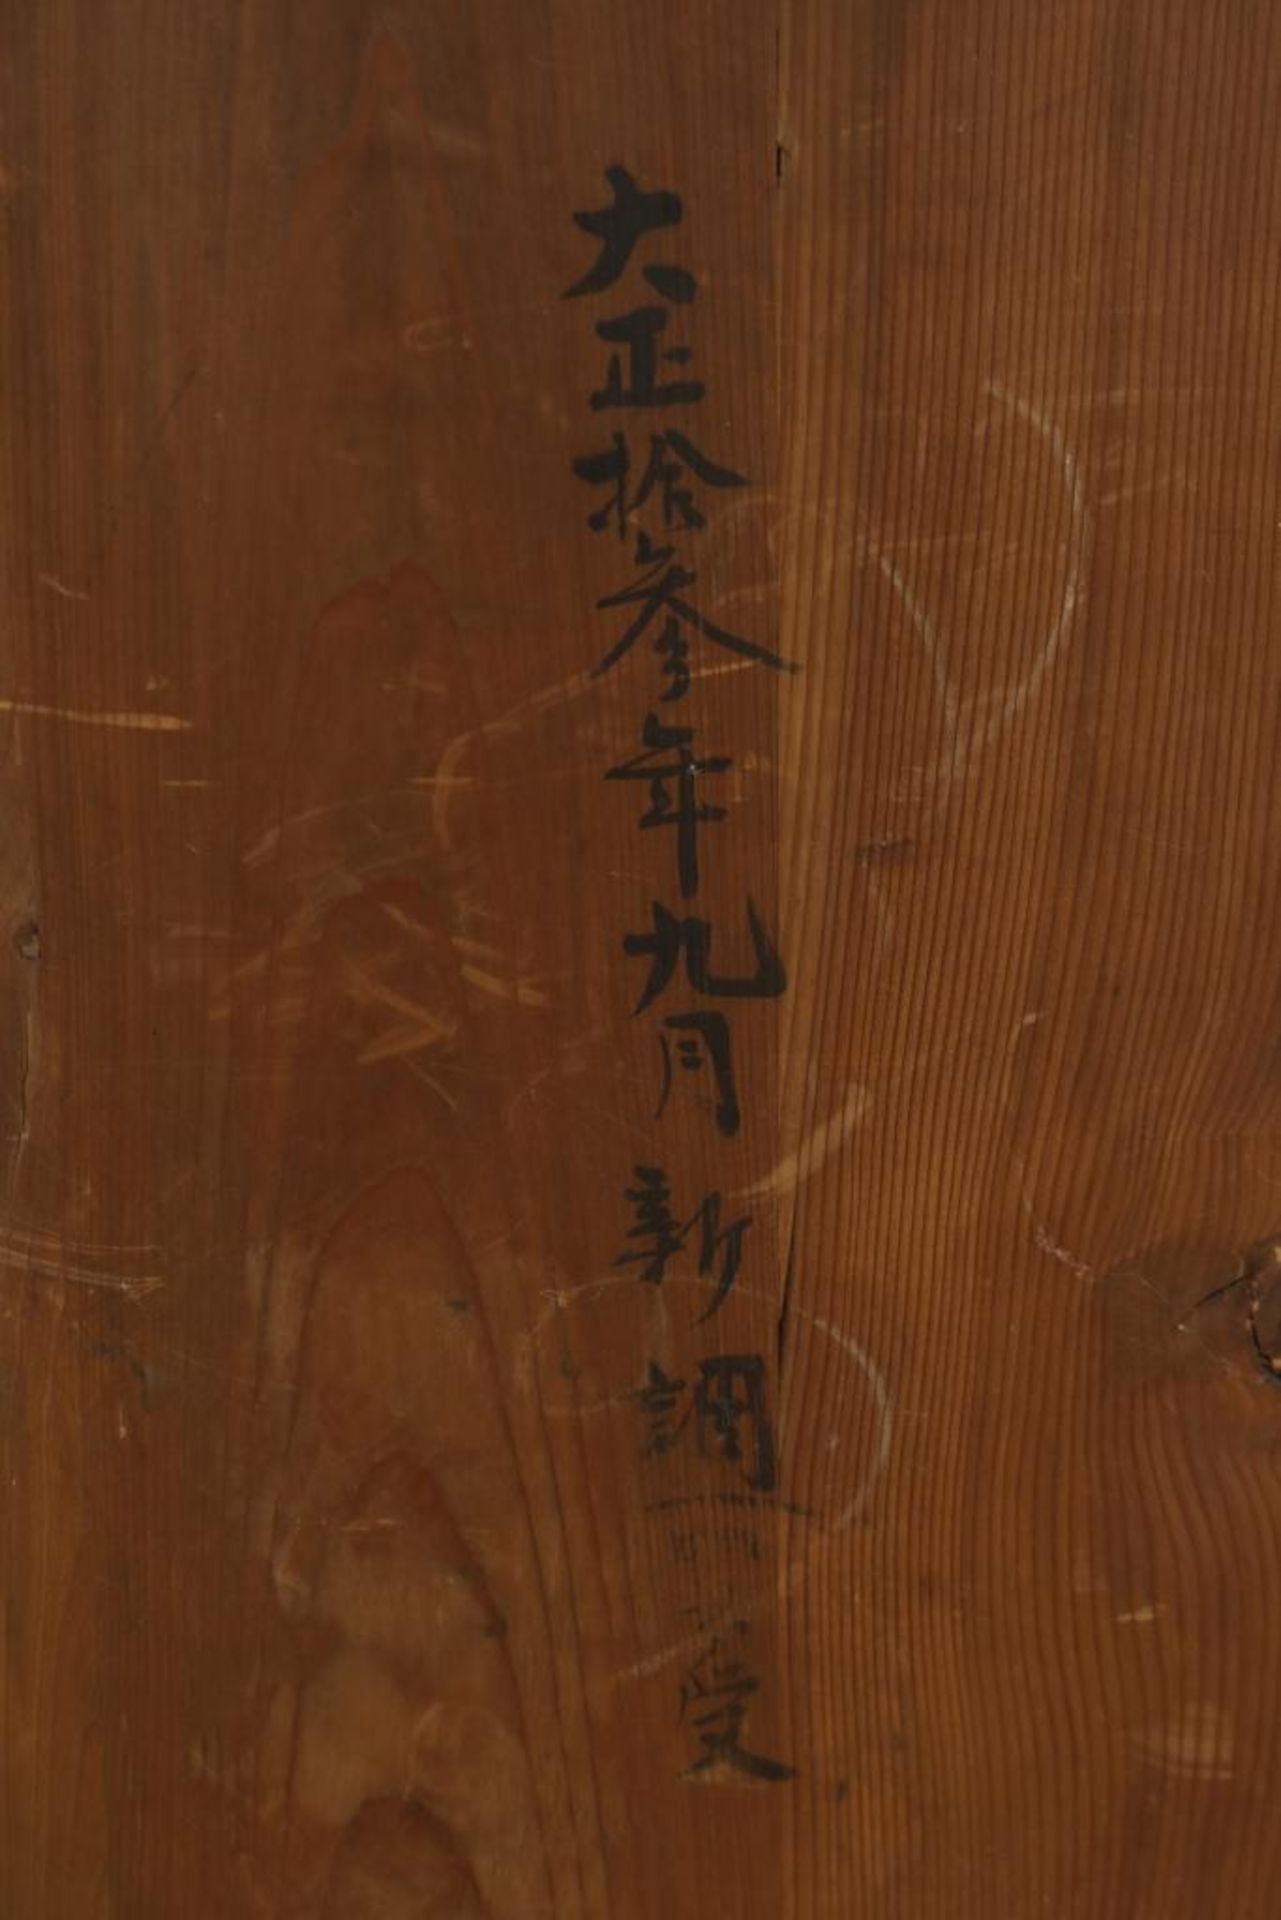 大正拾参年九月新調